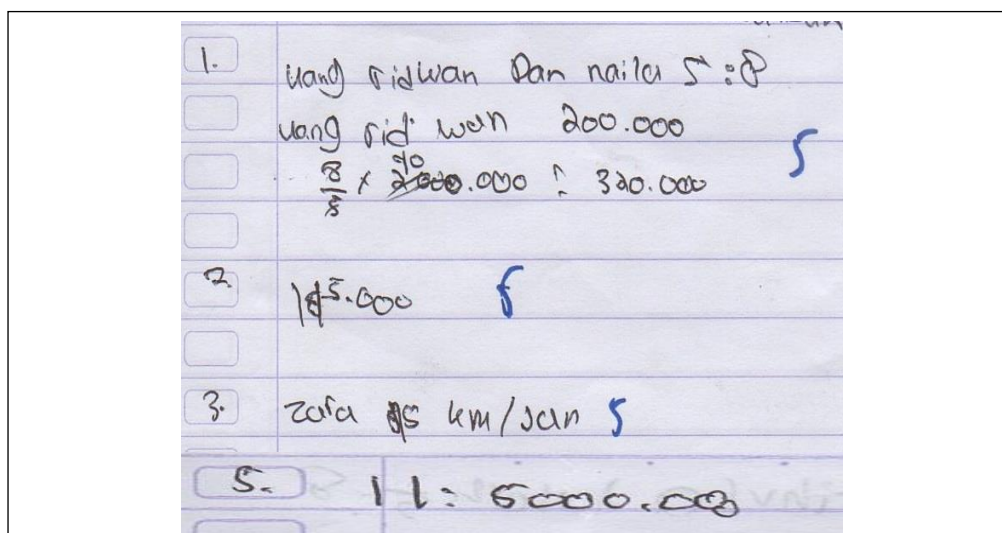 1. uang ridwan Dan naila 5 : 8
uang rid wan 200.000
8/5 x 2000.000 : 320.000
40
2. 5.000
3. zara 5 km/Jan
5. 1 1 : 5000.000